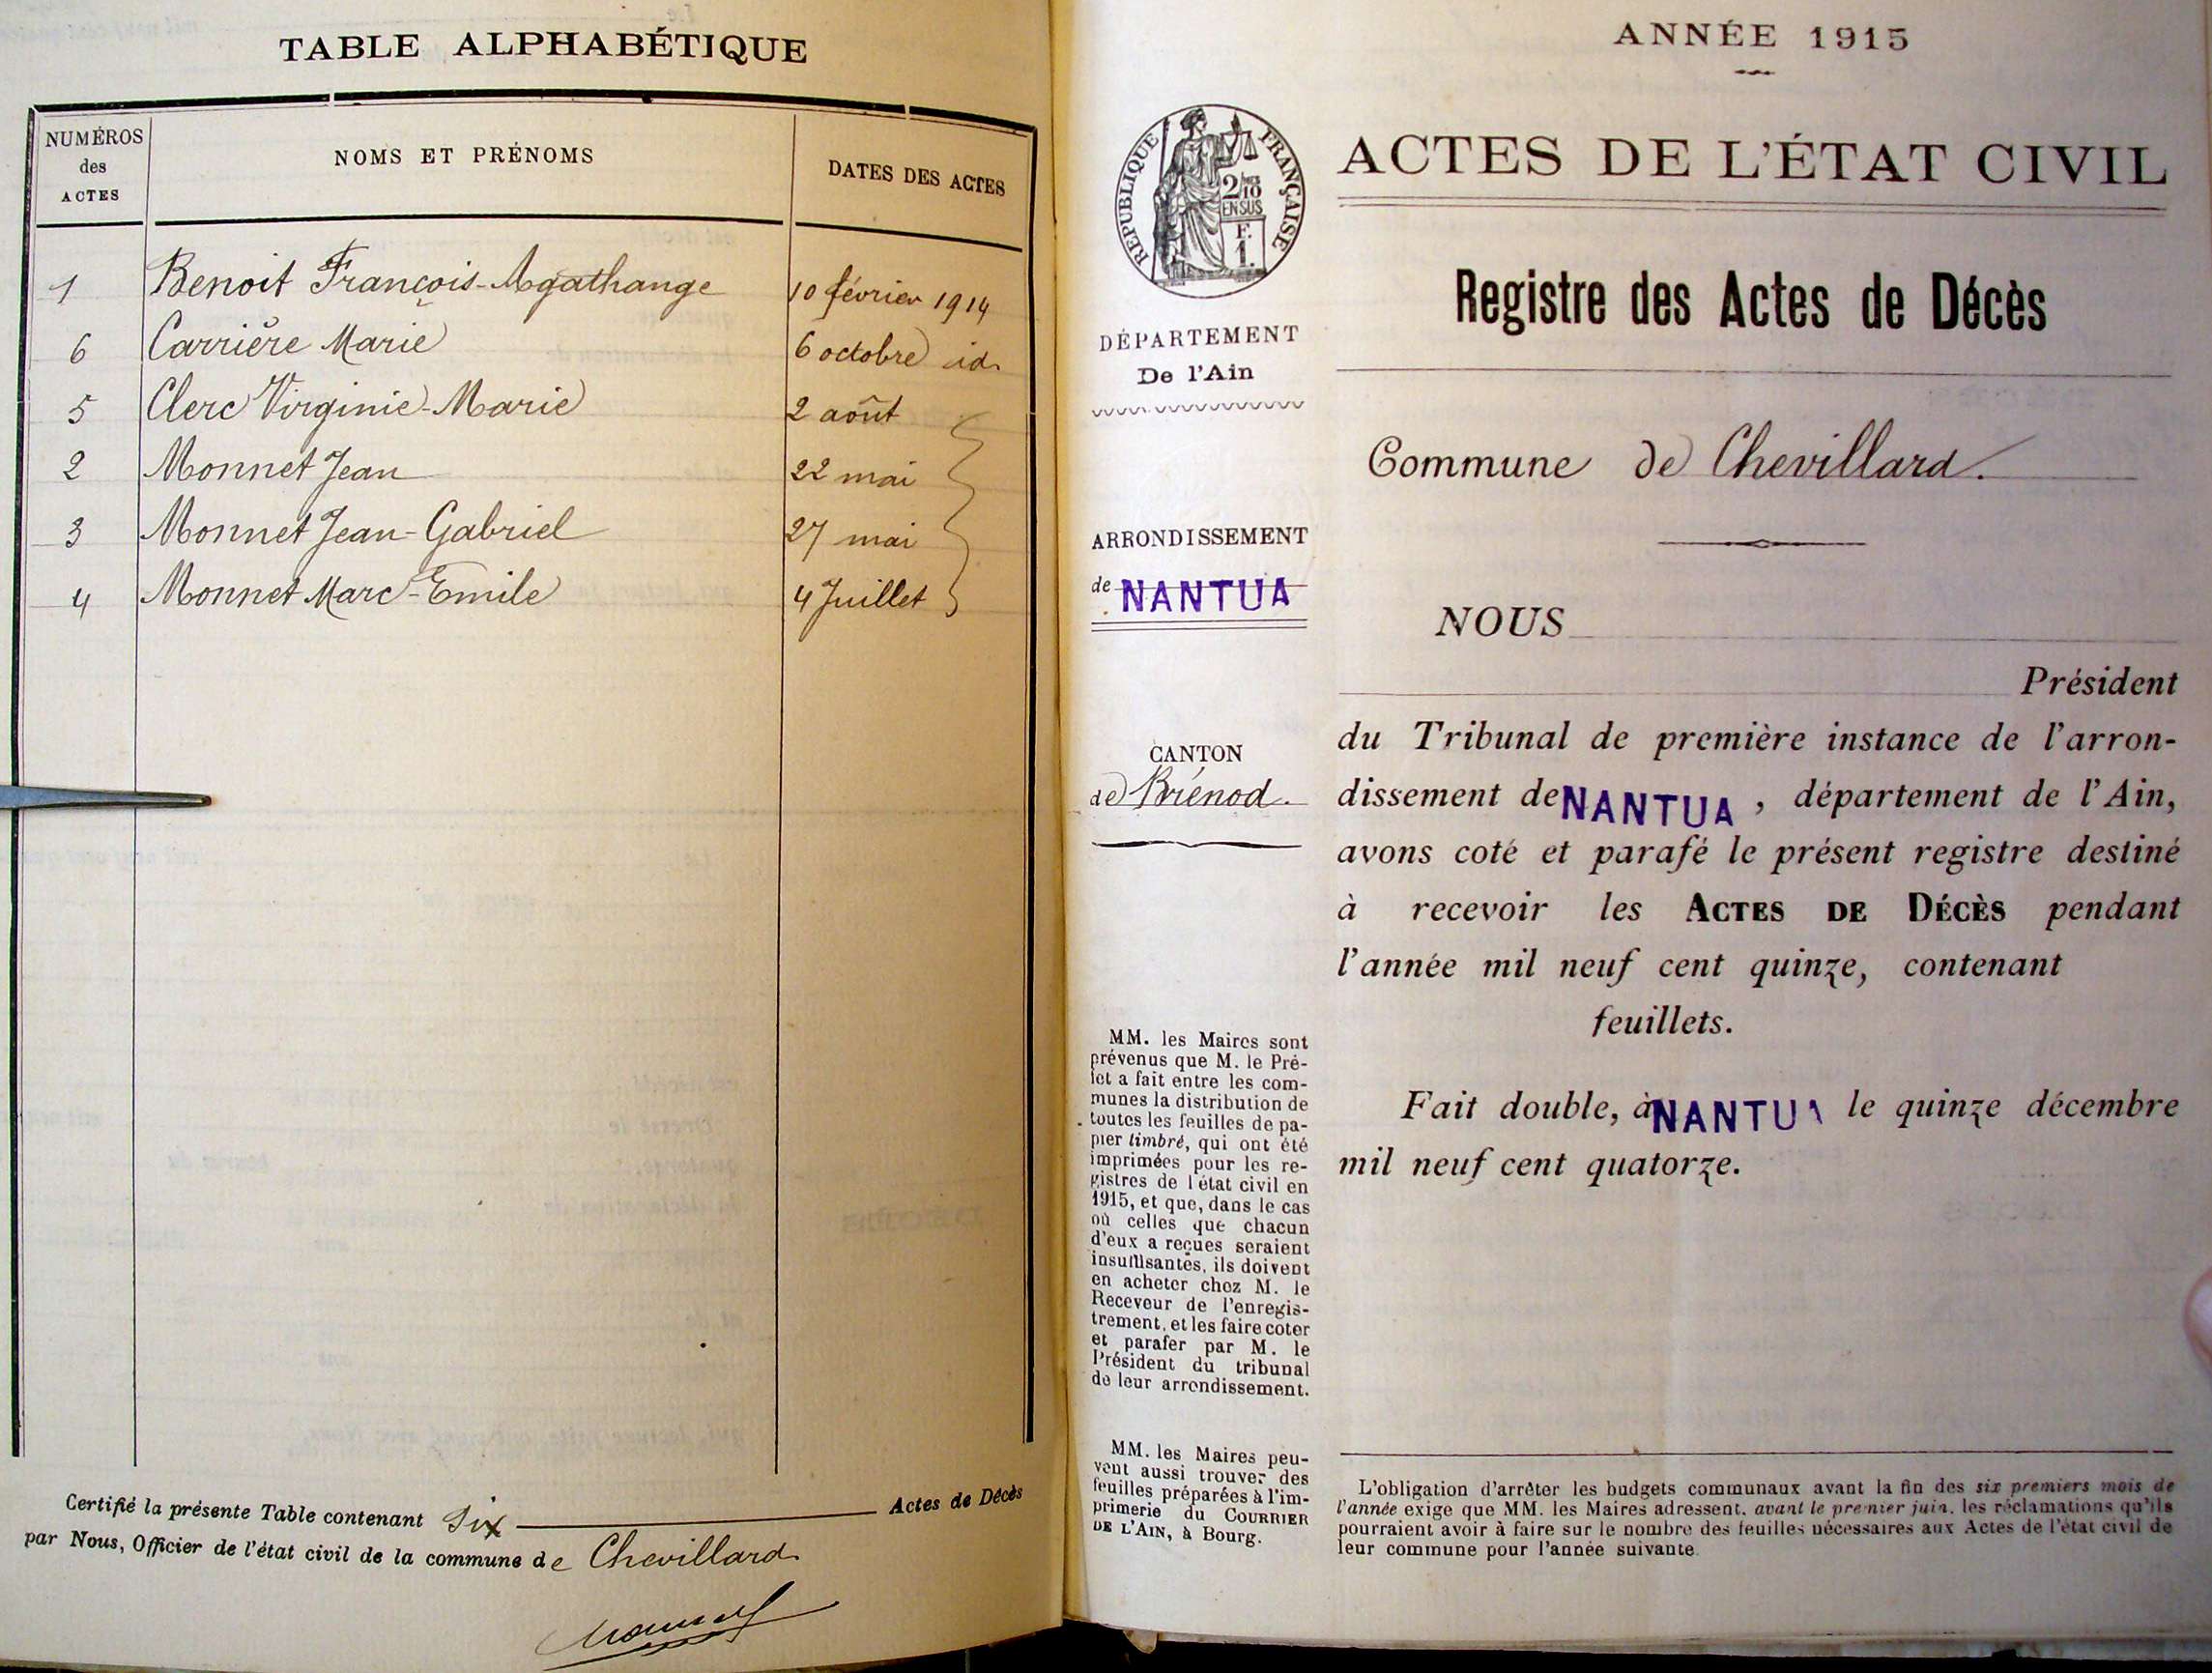 TABLE ALPHABÉTIQUE
NUMÉROS
des
ACTES
NOMS ET PRÉNOMS
DATES DES ACTES
1 Benoit François-Agathange 10 février 1914
6 Carrière Marie 6 octobre id.
5 Clerc Virginie-Marie 2 août
2 Monnet Jean 22 mai
3 Monnet Jean-Gabriel 27 mai
4 Monnet Marc-Emile 4 Juillet
Certifié la présente Table contenant six Actes de Décès
par Nous, Officier de l'état civil de la commune de Chevillard
ANNÉE 1915
RÉPUBLIQUE FRANÇAISE
2/10
EN SUS
F.
1.
DÉPARTEMENT
De l'Ain
ARRONDISSEMENT
de NANTUA
CANTON
de Brénod.
MM. les Maires sont
prévenus que M. le Pré-
fet a fait entre les com-
munes la distribution de
toutes les feuilles de pa-
pier timbré, qui ont été
imprimées pour les re-
gistres de l'état civil en
1915, et que, dans le cas
où celles que chacun
d'eux a reçues seraient
insuffisantes, ils doivent
en acheter chez M. le
Receveur de l'enregis-
trement, et les faire coter
et parafer par M. le
Président du tribunal
de leur arrondissement.
MM. les Maires peu-
vent aussi trouver des
feuilles préparées à l'im-
primerie du COURRIER
DE L'AIN, à Bourg.
ACTES DE L'ÉTAT CIVIL
Registre des Actes de Décès
Commune de Chevillard.
NOUS
Président
du Tribunal de première instance de l'arron-
dissement de NANTUA, département de l'Ain,
avons coté et parafé le présent registre destiné
à recevoir les ACTES DE DÉCÈS pendant
l'année mil neuf cent quinze, contenant
feuillets.
Fait double, à NANTUA le quinze décembre
mil neuf cent quatorze.
L'obligation d'arrêter les budgets communaux avant la fin des six premiers mois de
l'année exige que MM. les Maires adressent, avant le premier juin, les réclamations qu'ils
pourraient avoir à faire sur le nombre des feuilles nécessaires aux Actes de l'état civil de
leur commune pour l'année suivante.